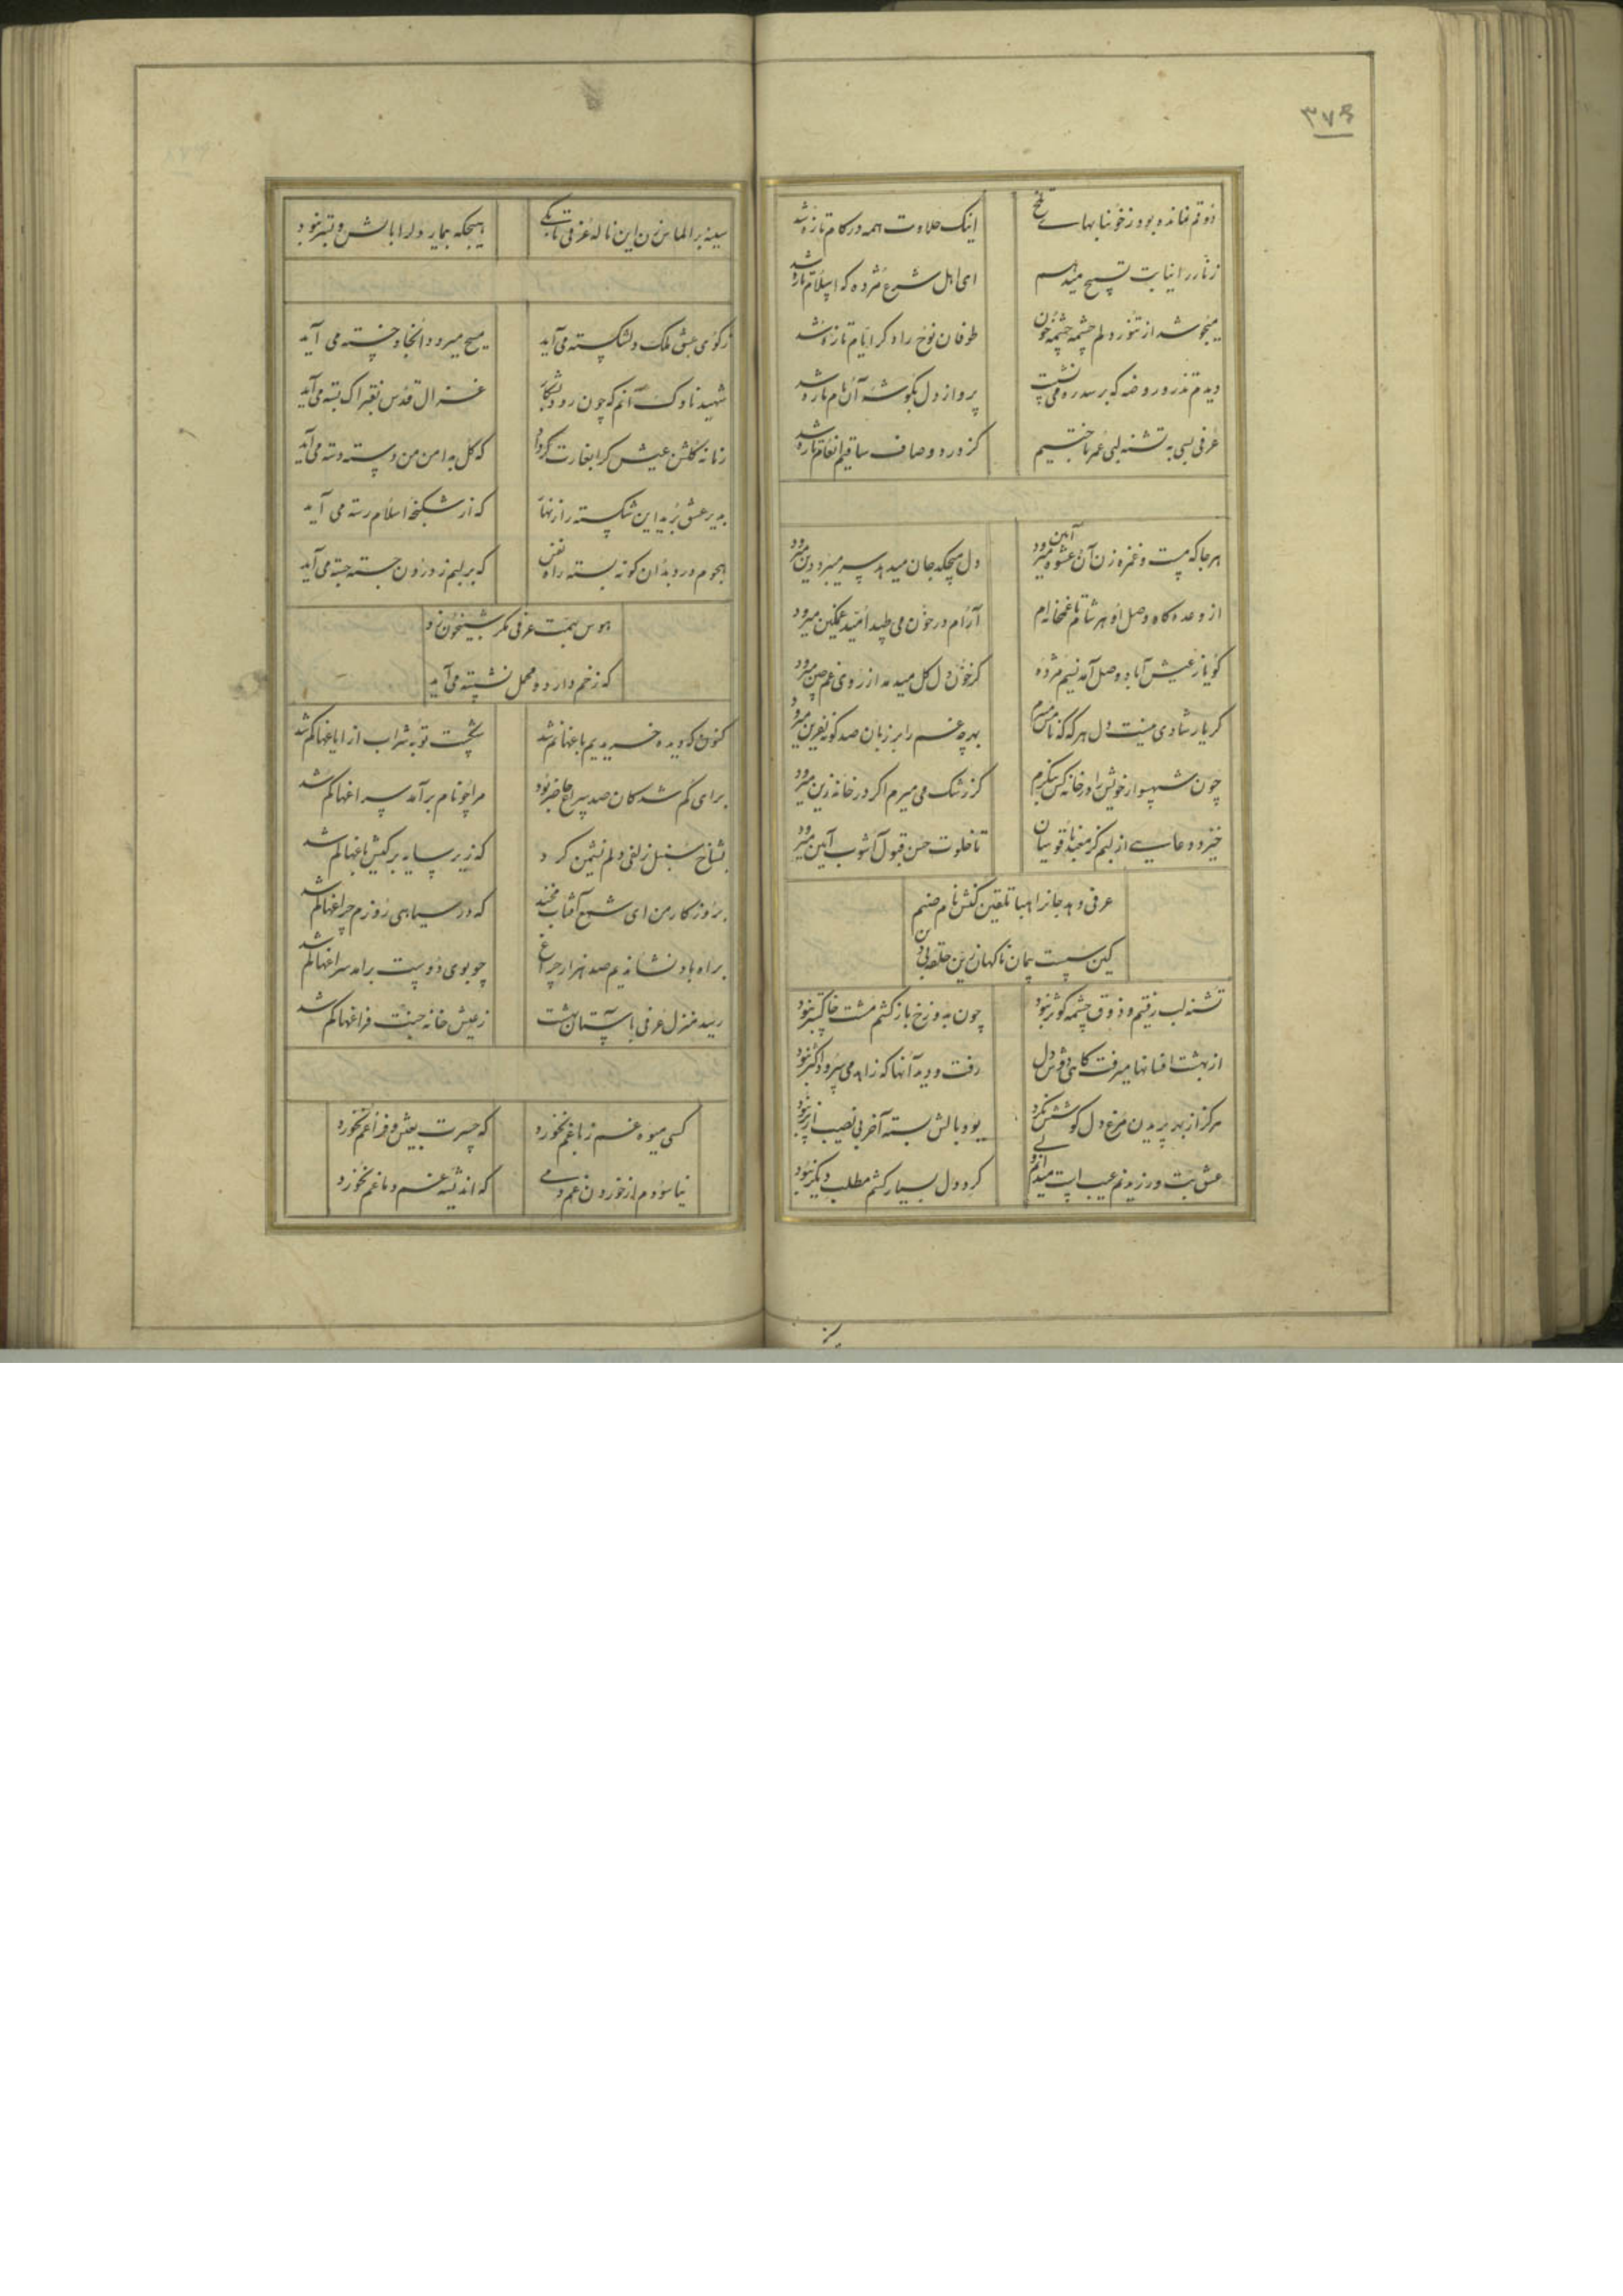 ۳۷۶
ذوقم نمانده بود ز خونابهای تلخ اینک حلاوت همه در کام تازه شد
زنار را نیابت تسبیح میدهم ای اهل شرع مژده که اسلام تازه شد
میجوشد از تنور دلم چشمه چشمه خون طوفان نوح را دگر ایام تازه شد
دیدم تذرو روضه که بر سدره می نشست پرواز دل بگوشه آن بام تازه شد
عرفی بسی به تشنه لبی عمر باختیم کز درد و صاف ساقیم انعام تازه شد
هر جا که مست و غمزه زن آن عشوه آیین میرود دل میچکد جان میدهد سر میبرد دین میرود
از وعده گاه وصل او هر شام تا غمخانه ام آرام در خون می طپد امید غمگین میرود
گویا ز عیش آباد وصل آمد نسیم مژده کز خون دل گل میدمد از روی غم چین میرود
گر یار شادی نیست دل هر گه که نامش میبرم بهر چه غم را بر زبان صد گونه نفرین میرود
چون شهسوار خویش را در خانه کس ننگرم کز رشک می میرم اگر در خانه زین میرود
خیزد دعایی از لبم کز معبد قدوسیان تا خلوت حسن قبول آشوب آمین میرود
عرفی دهد جان را هبا تلقین کنش نام صنم
کین سست پیمان ناگهان زین حلقه بی دین
تشنه لب رفتیم و ذوق چشمه کوثر نبود چون به دوزخ باز گشتم مشت خاکستر نبود
از بهشت افسانها میرفت گاهی دوش دل رفت و دید آنها که زاهد می سرود اکثر نبود
هرگز از بهر پریدن مرغ دل کوشش نکرد بود بالش بسته آخر بی نصیب از پر نبود
عشق بت ورزیدنم عیب است میدانم ولی کرد دل بسیار کشتم مطلب دیگر نبود
سینه بر الماس زن این ناله عرفی تا بکی هیچگه بیمار دل را بالش و بستر نبود
ز کوی عشق ملک دلشکسته می آید مسیح میرود آنجا و خسته می آید
شهید ناوک آنم که چون رود بشکار غزال قدس بفتراک بسته می آید
زمانه گلشن عیش کرا بغارت داد که گل به دامن من دسته دسته می آید
به دیر عشق برید این شکسته را زنهار که از شکنجه اسلام رسته می آید
هجوم درد بدان گونه بسته راه نفس که بر لبم ز درون جسته جسته می آید
هوس بهمت عرفی مگر شبیخون زد
که زخم دارد و محمل نشسته می آید
کنون که دیده خریدیم باغها گم شد نخست توبه شراب از ایاغها گم شد
برای گم شدگان صد چراغ حاضر بود مرا چو نام برآمد سراغها گم شد
بشاخ سنبل زلفی دلم نشیمن کرد که زیر سایه برگش باغها گم شد
بروزگار من ای شمع آفتاب مخند که در سیاهی روزم چراغها گم شد
براه باد نشاندیم صد هزار چراغ چو بوی دوست برآمد سراغها گم شد
رسید منزل عرفی بآستان بهشت ز عیش خانه جنت فراغها گم شد
کسی میوه غم ز باغم نخورد که حسرت بعیش و فراغم نخورد
نیاسودم از خوردن غم دمی که اندیشه غم دماغم نخورد